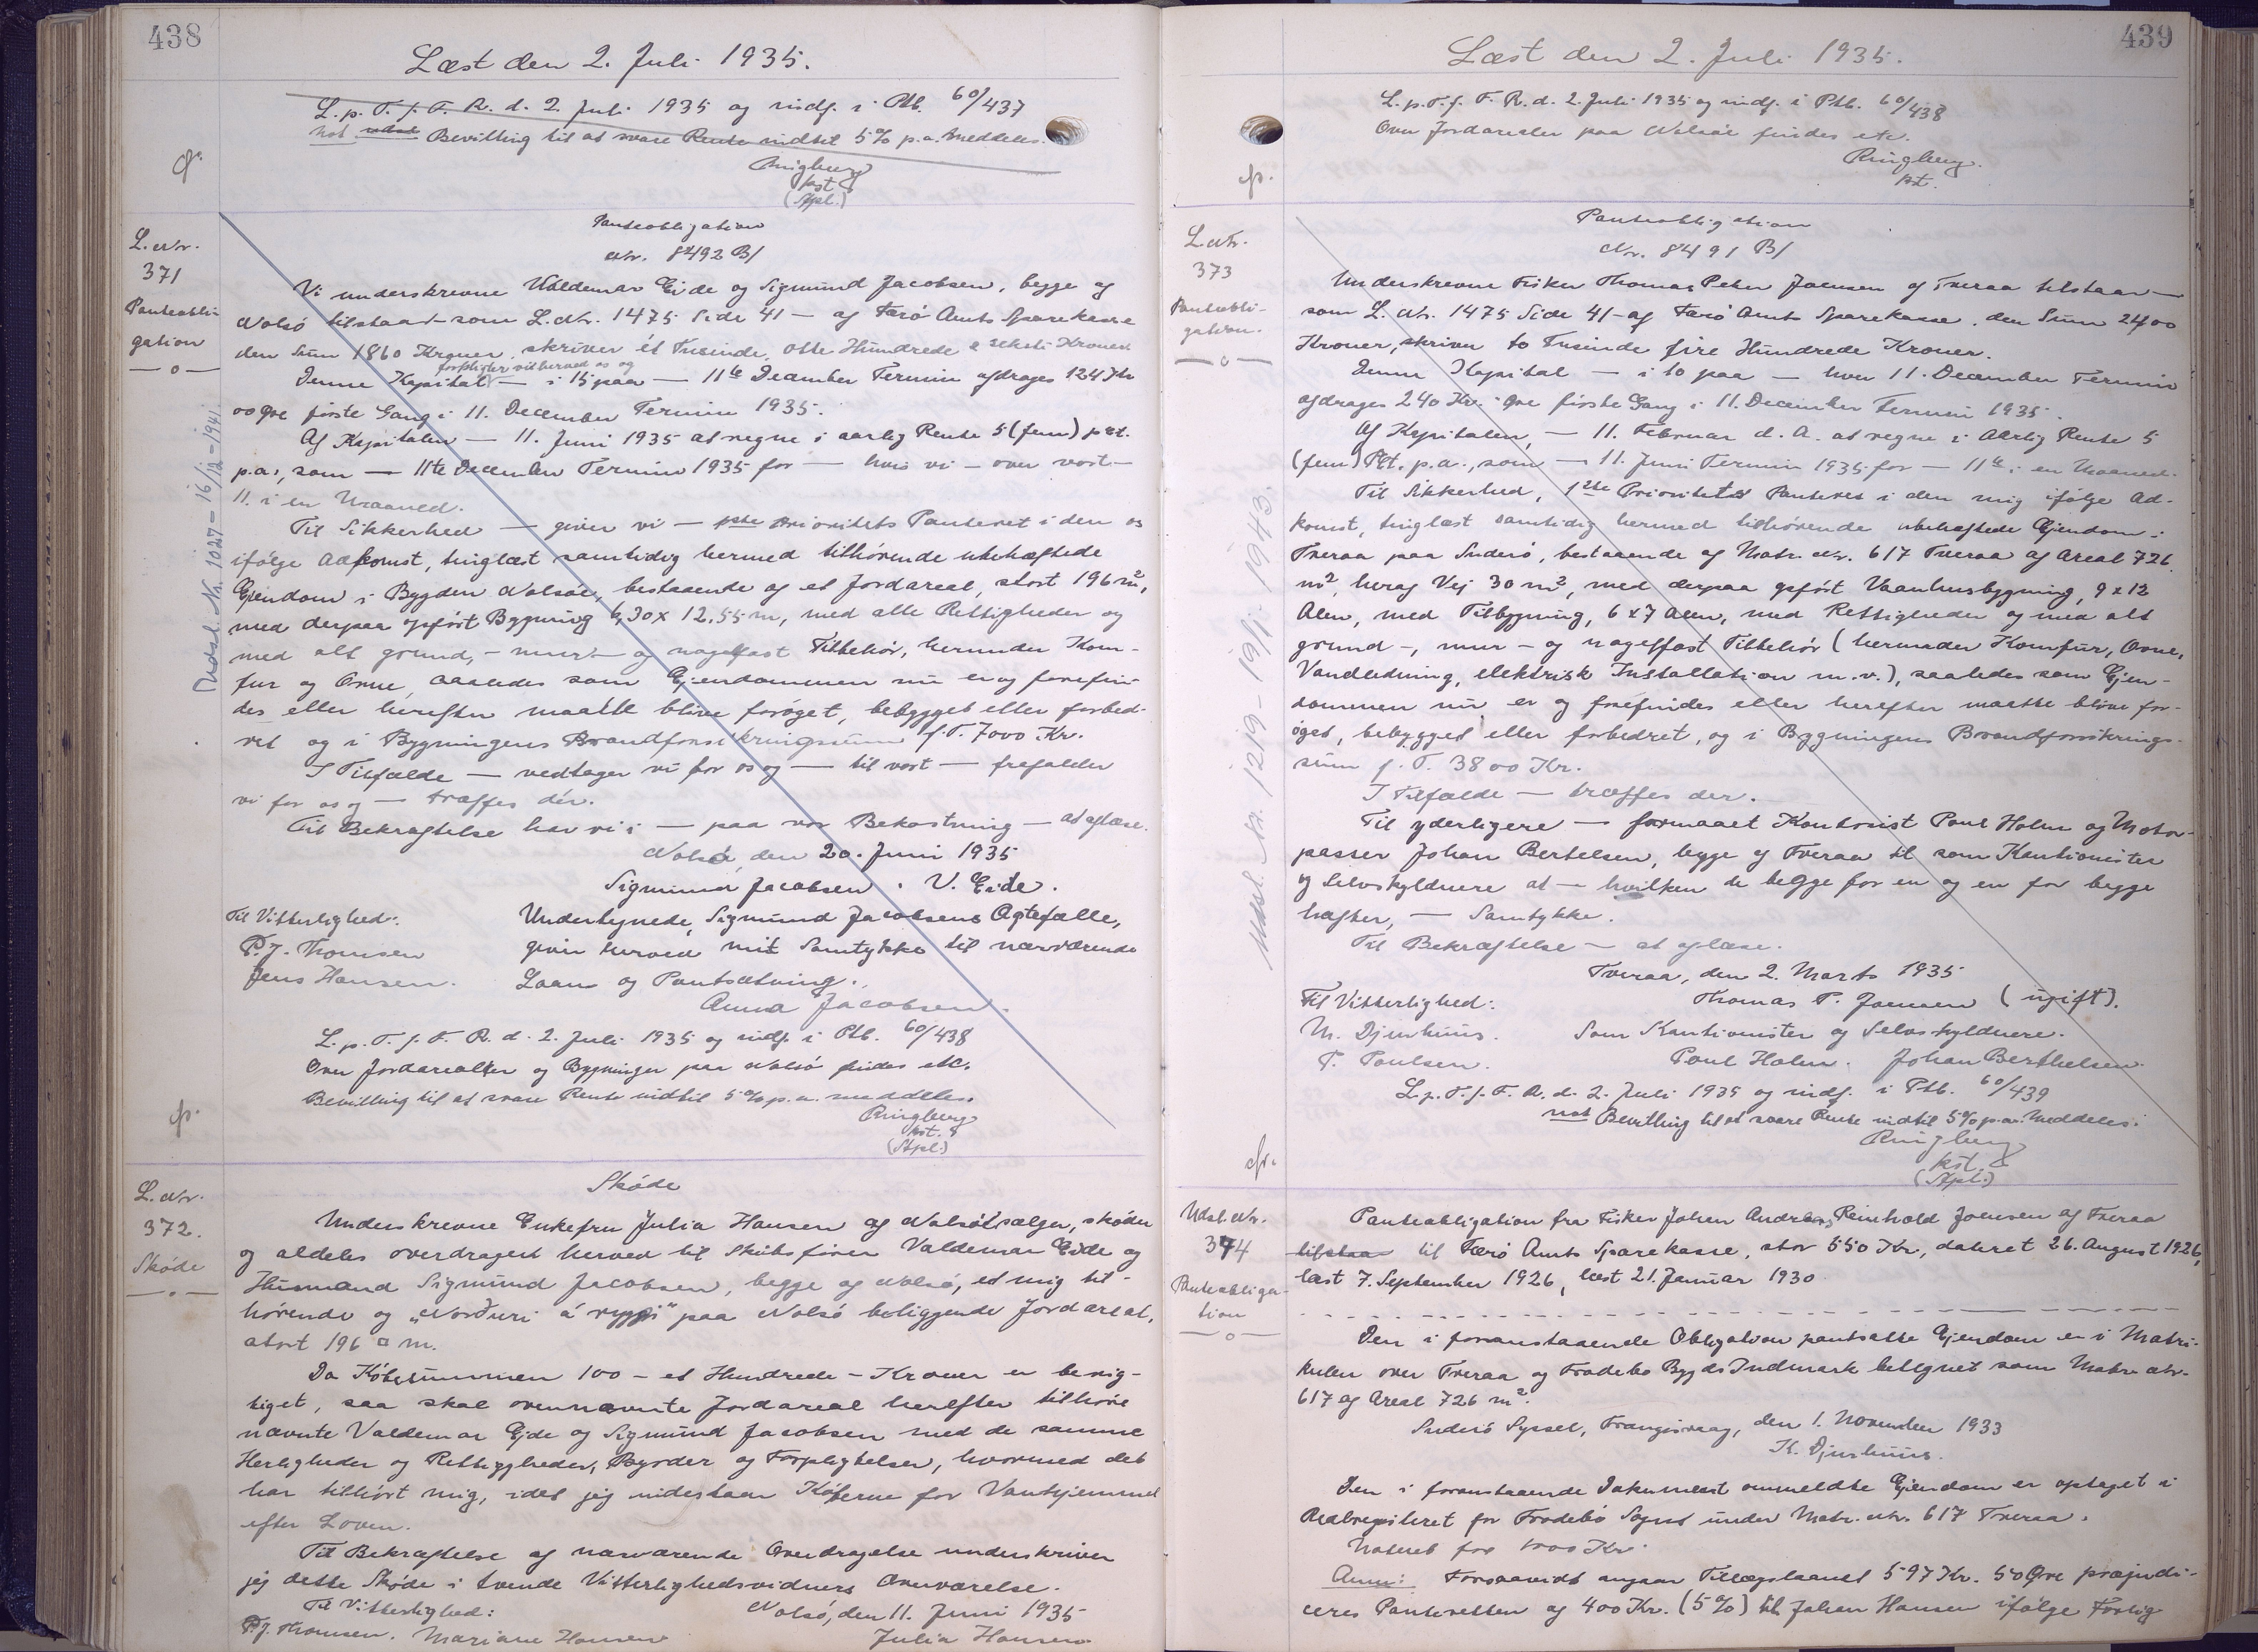 438
Læst den 2. Juli 1935.
L. p. T. f. F. R. d. 2. Juli 1935 og indf. i Ptb. 60/437
not Bevilling til at svare Rente indtil 5% p.a. meddeles.
Ringberg
kst
(Stpl.)
L. Nr.
371
Panteobli-
gation
Udsl. Nr. 1027 – 16/12 – 1941.
Panteobligation
Nr. 8492 B/
Vi underskrevne Valdemar Eide og Sigmund Jacobsen, begge af
Nolsö tilstaar – som L. Nr. 1475 Side 41 – af Færö Amts Sparekasse
den Sum 1860 Kroner, skriver ét Tusinde, otte Hundrede & seksti Kroner.
forpligter vi herved os og
Denne Kapital – i 15 paa – 11te December Termin afdrages 124 Kr
00 Øre første Gang i 11. December Termin 1935.
Af Kapitalen – 11. Juni 1935 at regne i aarlig Rente 5 (fem) pct.
p.a., som – 11te December Termin 1935 for – hvis vi – over vort –
11. i en Maaned.
Til Sikkerhed – giver vi – 1ste Prioritets Panteret i den os
ifølge Adkomst, tinglæst samtidig hermed tilhørende ubehæftede
Ejendom i Bygden Nolsöe, bestaaende af et Jordareal, stort 196 m²,
med derpaa opført Bygning 6,30 x 12,55 m, med alle Rettigheder og
med alt grund, – mur – og nagelfast Tilbehör, herunder Kom-
fur og Ovne, saaledes som Ejendommen nu er og forefin-
des eller herefter maatte blive forøget, bebygget eller forbed-
ret og i Bygningens Brandforsikringssum f. T. 7000 Kr.
I Tilfælde – vedtager vi for os og – til vort – frafalder
vi for os og – træffes dér.
Til Bekræftelse har vi i – paa vor Bekostning – at aflæse.
Nolsö, den 20. Juni 1935
Sigmund Jacobsen. V. Eide.
Til Vitterlighed:
P. J. Thomsen
Jens Hansen.
Undertegnede, Sigmund Jacobsens Ægtefælle,
giver herved mit Samtykke til nærværende
Laan og Pantsætning.
Anna Jacobsen.
L. p. T. f. F. R. d. 2. Juli 1935 og indf. i Ptb. 60/438
Over Jordarealer og Bygninger paa Nolsö findes etc.
Bevilling til at svare Rente indtil 5% p.a. meddeles.
Ringberg
kst.
(Stpl.)
L. Nr.
372.
Skøde
Skøde
Underskrevne Enkefru Julia Hansen af Nolsö sælger, skøder
og aldeles overdrager herved til Skibsfører Valdemar Eide og
Husmand Sigmund Jacobsen, begge af Nolsö, et mig til-
hørende og "Norðuri á ryggi" paa Nolsö beliggende Jordareal,
stort 196 □ m.
Da Købesummen 100 – et Hundrede – Kroner er berig-
tiget, saa skal ovennævnte Jordareal herefter tilhøre
nævnte Valdemar Ejde og Sigmund Jacobsen med de samme
Herligheder og Rettigheder, Byrder og Forpligtelser, hvormed det
har tilhørt mig, idet jeg indestaar Køberne for Vanhjemmel
efter Loven.
Til Bekræftelse af nærværende Overdragelse underskriver
jeg dette Skøde i tvende Vitterlighedsvidners Overværelse.
Til Vitterlighed:
Nolsö, den 11. Juni 1935
P. J. Thomsen. Mariane Hansen
Julia Hansen
439
Læst den 2. Juli 1935.
L. p. T. f. F. R. d. 2. Juli 1935 og indf. i Ptb. 60/438
Over Jordarealer paa Nolsöe findes etc.
Ringberg.
kst.
L. Nr.
373
Panteobli-
gation.
Udsl. Nr. 1219 – 19/1 1943.
Panteobligation
Nr. 8491 B/
Underskrevne Fisker Thomas Peter Joensen af Tveraa tilstaar –
som L. Nr. 1475 Side 41 – af Færö Amts Sparekasse, den Sum 2400
Kroner, skriver to Tusinde fire Hundrede Kroner.
Denne Kapital – i 10 paa – hver 11. December Termin
afdrages 240 Kr. – Øre første Gang i 11. December Termin 1935.
Af Kapitalen – 11. Februar d. A. at regne i Aarlig Rente 5
(fem) Pct. p.a., som – 11. Juni Termin 1935 for – 11te i en Maaned.
Til Sikkerhed, 1ste Prioritets Panteret i den mig ifølge Ad-
komst, tinglæst samtidig hermed tilhørende ubehæftede Ejendom i
Tveraa paa Suderö, bestaaende af Matr. Nr. 617 Tveraa af Areal 726
m², heraf Vej 30 m², med derpaa opført Vaanhusbygning, 9 x 12
Alen, med Tilbygning, 6 x 7 Alen, med Rettigheder og med alt
grund –, mur – og nagelfast Tilbehör (herunder Komfur, Ovne,
Vandledning, elektrisk Installation m.v.), saaledes som Ejen-
dommen nu er og forefindes eller herefter maatte blive for-
øget, bebygget eller forbedret, og i Bygningens Brandforsikrings-
sum f. T. 3800 Kr.
I Tilfælde – træffes der.
Til yderligere – formaaet Kontorist Poul Holm og Motor-
passer Johan Bertelsen, begge af Tveraa til som Kautionister
og Selvskyldnere at – hvilken de begge for en og en for begge
hæfter, – Samtykke.
Til Bekræftelse – at aflæse.
Tveraa, den 2. Marts 1935
Til Vitterlighed:
Thomas P. Joensen (ugift).
M. Djurhuus.
Som Kautionister og Selvskyldnere.
P. Poulsen.
Poul Holm. Johan Berthelsen.
L. p. T. f. F. R. d. 2. Juli 1935 og indf. i Ptb. 60/439
not Bevilling til at svare Rente indtil 5% p.a. meddeles.
Ringberg
kst.
(Stpl.)
Udsl. Nr.
374
Panteobliga-
tion
Panteobligation fra Fisker Johan Andreas Reinhold Joensen af Tveraa
tilstaar til Færö Amts Sparekasse, stor 550 Kr., dateret 26. August 1926,
læst 7. September 1926, læst 21. Januar 1930
Den i foranstaaende Obligation pantsatte Ejendom er i Matri-
kulen over Tveraa og Frodebö Bygds Indmark betegnet som Matr. Nr.
617 af Areal 726 m².
Suderö Syssel, Trangisvaag, den 1. November 1933
K. Djurhuus.
Den i foranstaaende Dokument ommeldte Ejendom er optaget i
Realregisteret for Frodebö Sogn under Matr. Nr. 617 Tveraa.
Noteret for
Anm: Forsaavidt angaar Tillægslaanet 597 Kr. 50 Øre præjudi-
ceres Panteretten af 400 Kr. (5%) til Johan Hansen ifølge Forlig